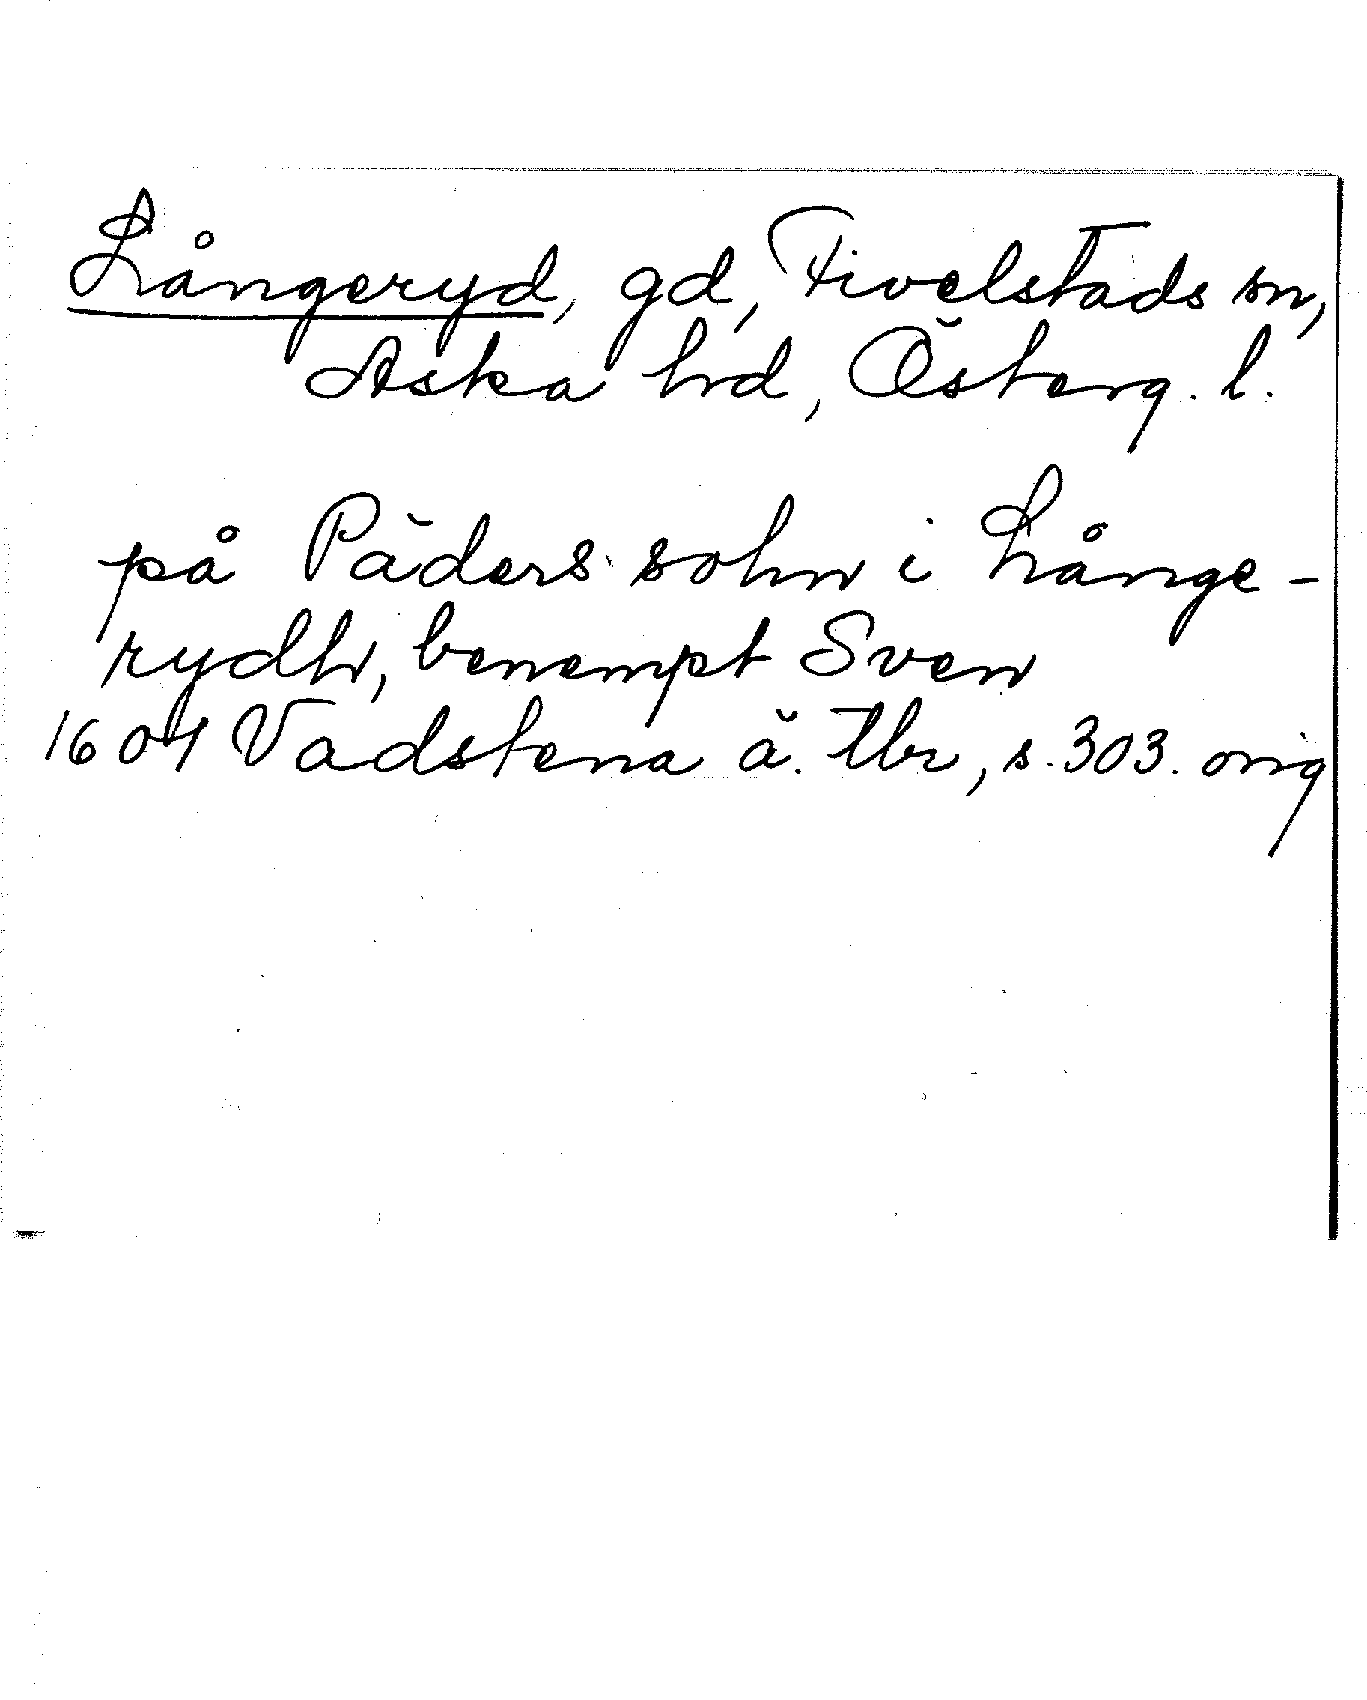 Långeryd, gd, Fivelstads sn,
Aska hrd, Österg. l.
på Päders sohn i Långe-
rydh, benempt Sven
1604 Vadstena ä. tbr, s. 303. orig